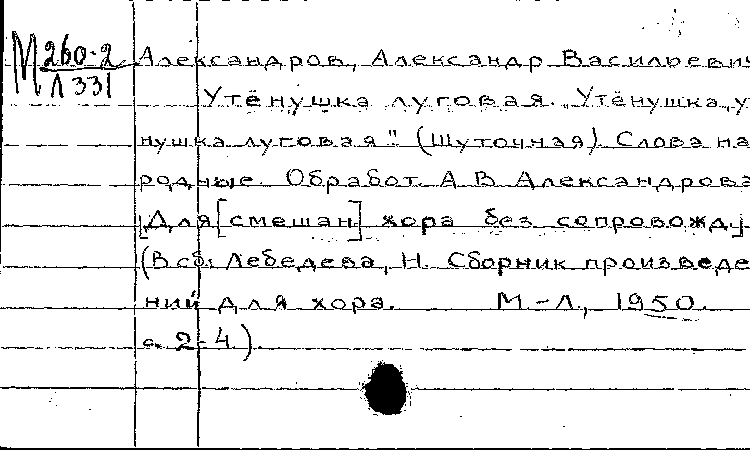 М 260-2
Л 331
Александров, Александр Васильевич
Утёнушка луговая. „Утёнушка, у
нушка луговая" (Шуточная). Слова на
родные. Обработ. А.В. Александрова
[Для [смешан] хора без сопровожд.]
(В сб: Лебедева, Н. Сборник произведе
ний для хора. М.-Л., 1950.
с. 2-4).